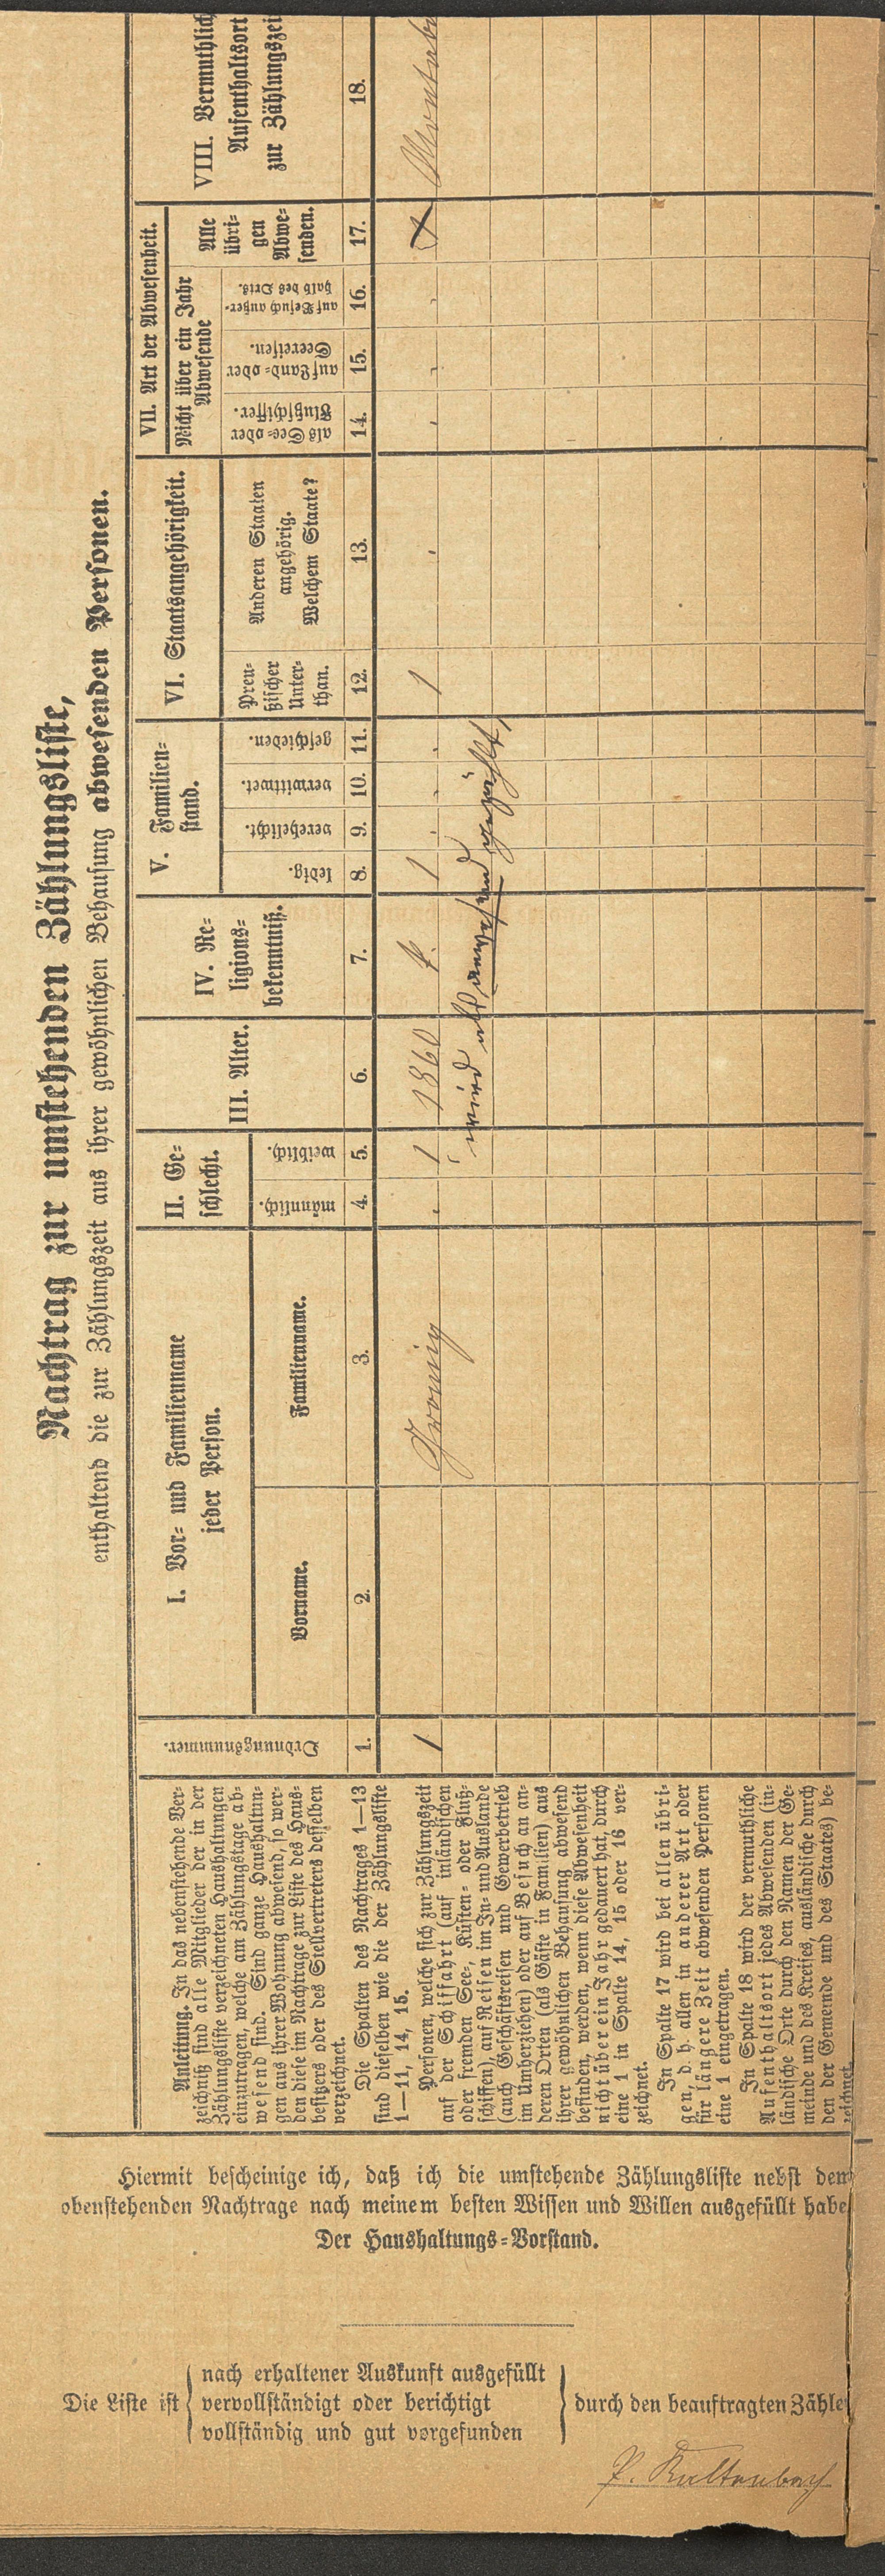 Nachtrag zur umstehenden Zählungsliste,
enthaltend die zur Zählungszeit aus ihrer gewöhnlichen Behausung abwesenden Personen.
Anleitung. In das nebenstehende Ver-
zeichniß sind alle Mitglieder der in der
Zählungsliste verzeichneten Haushaltungen
einzutragen, welche am Zählungstage ab-
wesend sind. Sind ganze Haushaltun-
gen aus ihrer Wohnung abwesend, so wer-
den diese im Nachtrage zur Liste des Haus-
besitzers oder des Stellvertreters desselben
verzeichnet.
Die Spalten des Nachtrages 1—13
sind dieselben wie die der Zählungsliste
1—11, 14, 15.
Personen, welche sich zur Zählungszeit
auf der Schiffahrt (auf inländischen
oder fremden See-, Küsten- oder Fluß-
schiffen), auf Reisen im In- und Auslande
(auch Geschäftsreisen und Gewerbebetrieb
im Umherziehen) oder auf Besuch an an-
deren Orten (als Gäste in Familien) aus
ihrer gewöhnlichen Behausung abwesend
befinden, werden, wenn diese Abwesenheit
nicht über ein Jahr gedauert hat, durch
eine 1 in Spalte 14, 15 oder 16 ver-
zeichnet.
In Spalte 17 wird bei allen übri-
gen, d. h. allen in anderer Art oder
für längere Zeit abwesenden Personen
eine 1 eingetragen.
In Spalte 18 wird der vermuthliche
Aufenthaltsort jedes Abwesenden (in-
ländische Orte durch den Namen der Ge-
meinde und des Kreises, ausländische durch
den der Gemeinde und des Staates) be-
zeichnet.
Ordnungsnummer.
I. Vor- und Familienname
jeder Person.
Vorname.
Familienname.
II. Ge-
schlecht.
männlich.
weiblich.
III. Alter.
IV. Re-
ligions-
bekenntniß.
V. Familien-
stand.
ledig.
verehelicht.
verwittwet.
geschieden.
VI. Staatsangehörigkeit.
Preu-
ßischer
Unter-
than.
Anderen Staaten
angehörig.
Welchem Staate?
VII. Art der Abwesenheit.
Nicht über ein Jahr
Abwesende
als See- oder
Flußschiffer.
auf Land- oder
Seereisen.
auf Besuch außer-
halb des Orts.
Alle
übri-
gen
Abwe-
senden.
VIII. Vermuthlich
Aufenthaltsort
zur Zählungszei
1. 2. 3. 4. 5. 6. 7. 8. 9. 10. 11. 12. 13. 14. 15. 16. 17. 18.
1 1 1860 k. 1 1
wird als anwesend gezählt,
Hiermit bescheinige ich, daß ich die umstehende Zählungsliste nebst dem
obenstehenden Nachtrage nach meinem besten Wissen und Willen ausgefüllt habe
Der Haushaltungs-Vorstand.
Die Liste ist
nach erhaltener Auskunft ausgefüllt
vervollständigt oder berichtigt
vollständig und gut vorgefunden
durch den beauftragten Zähle